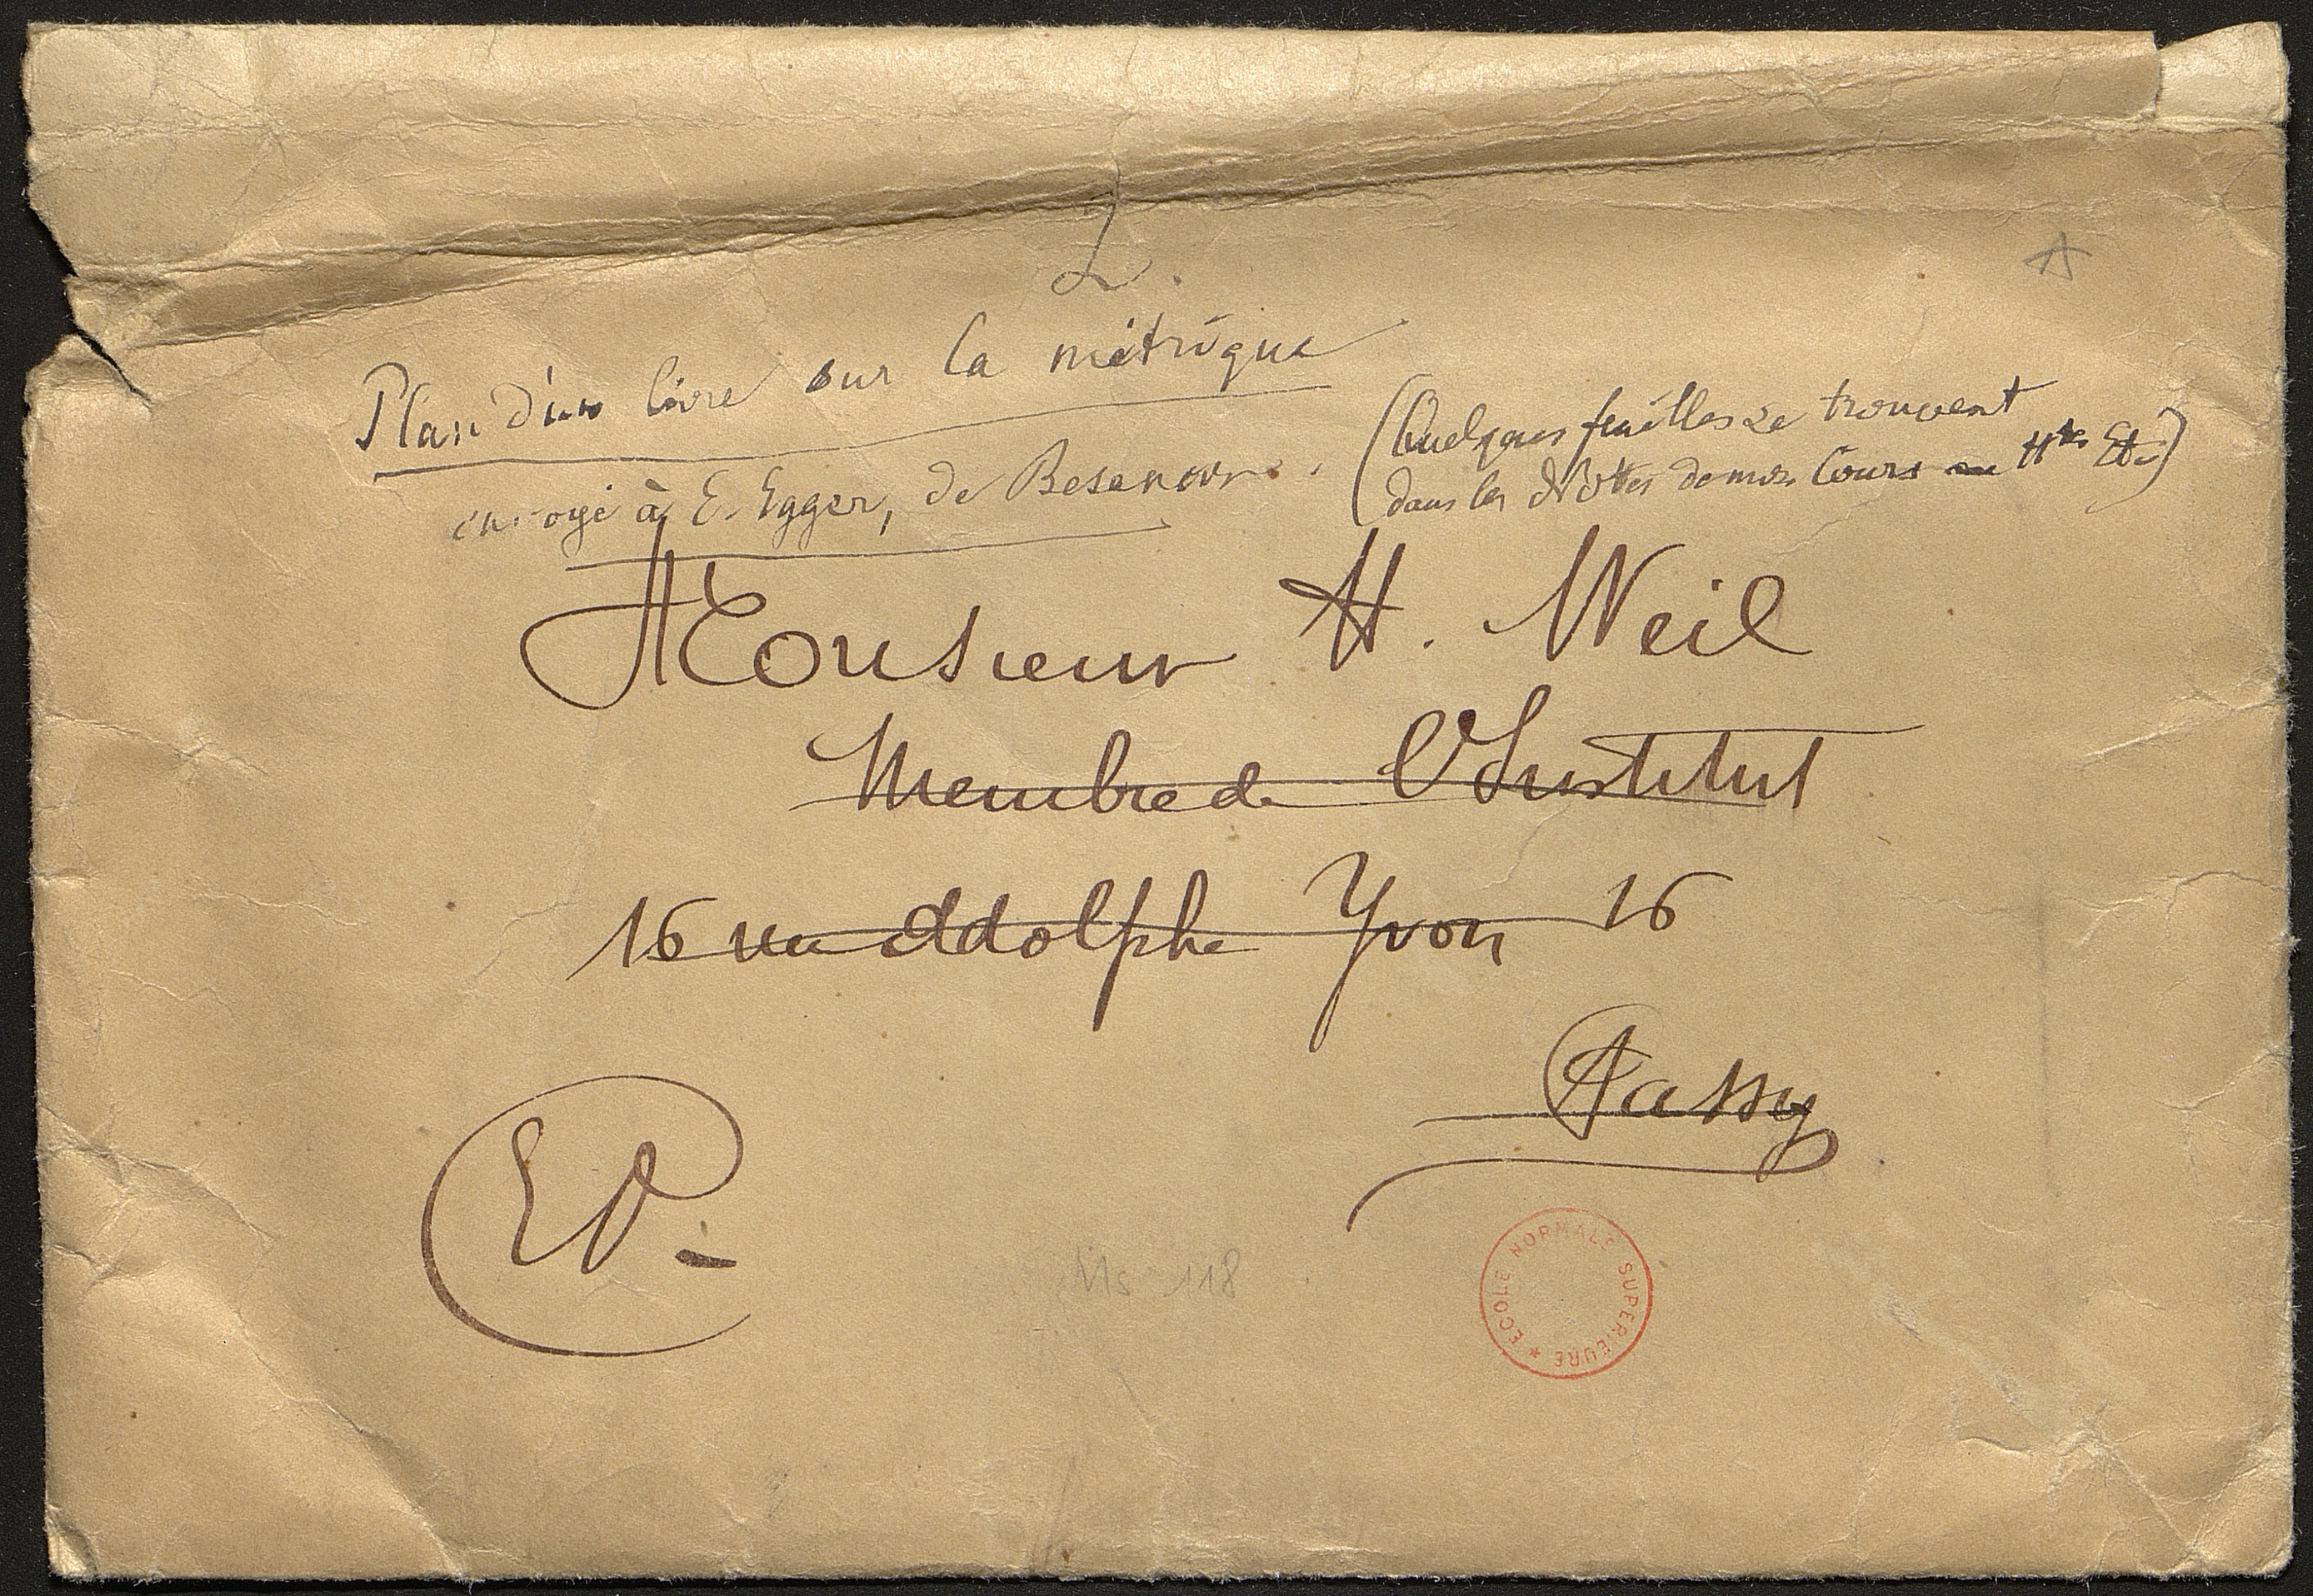 2.
A
Plan d'un livre sur la métrique
envoyé à E. Egger, de Besançon. (Quelques feuilles se trouvent
dans les Notes de mon Cours Htes Et.)
Monsieur H. Weil
Membre de l'Institut
16 rue Adolphe Yvon 16
Passy
EV.
Ms 118
ECOLE NORMALE SUPERIEURE *